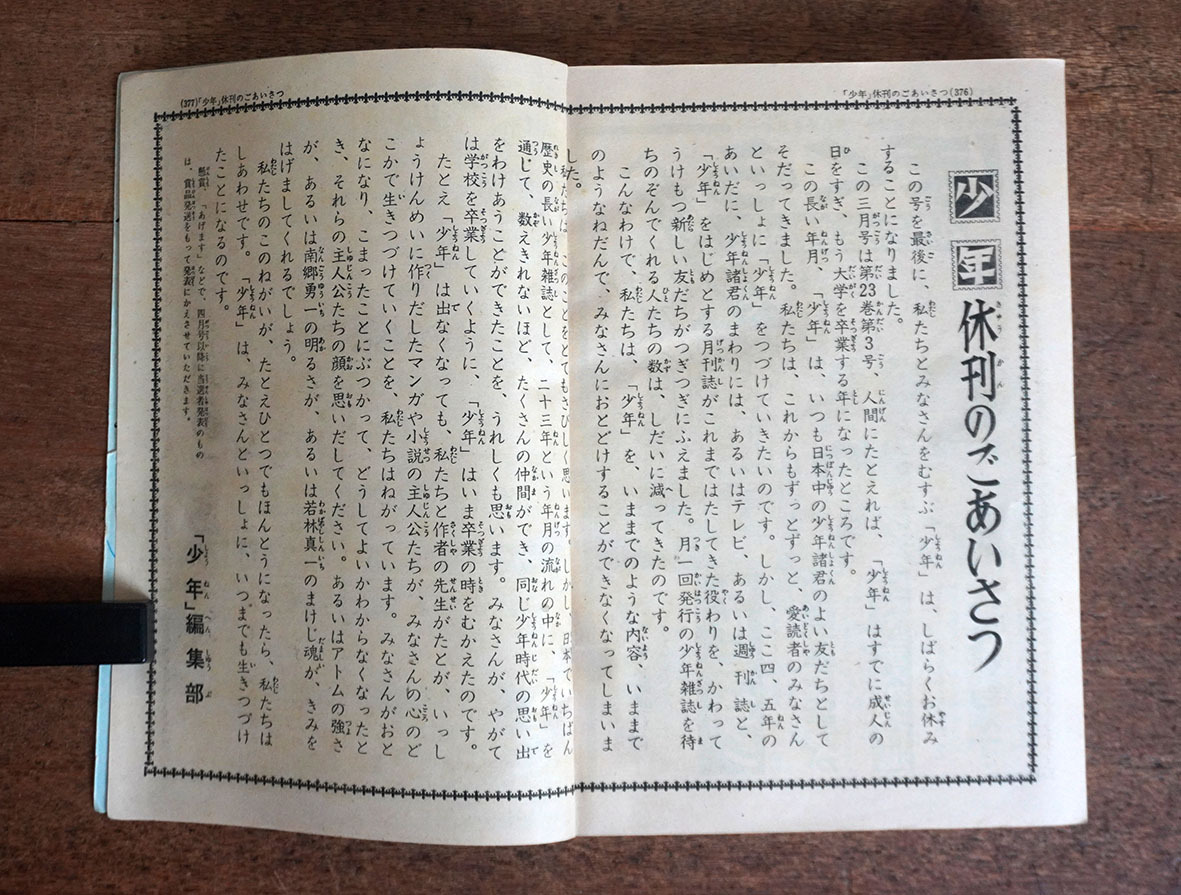 「少年」休刊のごあいさつ(376)
少年 休刊のごあいさつ
この号を最後に、私たちとみなさんをむすぶ「少年」は、しばらくお休み
することになりました。
この三月号は第23巻第3号、人間にたとえれば、「少年」はすでに成人の
日をすぎ、もう大学を卒業する年になったところです。
この長い年月、「少年」は、いつも日本中の少年諸君のよい友だちとして
そだってきました。私たちは、これからもずっとずっと、愛読者のみなさん
といっしょに「少年」をつづけていきたいのです。しかし、ここ四、五年の
あいだに、少年諸君のまわりには、あるいはテレビ、あるいは週刊誌と、
「少年」をはじめとする月刊誌がこれまではたしてきた役わりを、かわって
うけもつ新しい友だちがつぎつぎにふえました。月一回発行の少年雑誌を待
ちのぞんでくれる人たちの数は、しだいに減ってきたのです。
こんなわけで、私たちは、「少年」を、いままでのような内容、いままで
のようなねだんで、みなさんにおとどけすることができなくなってしまいま
した。
(377)「少年」休刊のごあいさつ
私たちは、このことをとてもさびしく思います。しかし、日本でいちばん
歴史の長い少年雑誌として、二十三年という年月の流れの中に、「少年」を
通じて、数えきれないほど、たくさんの仲間ができ、同じ少年時代の思い出
をわけあうことができたことを、うれしくも思います。みなさんが、やがて
は学校を卒業していくように、「少年」はいま卒業の時をむかえたのです。
たとえ「少年」は出なくなっても、私たちと作者の先生がたとが、いっし
ょうけんめいに作りだしたマンガや小説の主人公たちが、みなさんの心のど
こかで生きつづけていくことを、私たちはねがっています。みなさんがおと
なになり、こまったことにぶつかって、どうしてよいかわからなくなったと
き、それらの主人公たちの顔を思いだしてください。あるいはアトムの強さ
が、あるいは南郷勇一の明るさが、あるいは若林真一のまけじ魂が、きみを
はげましてくれるでしょう。
私たちのこのねがいが、たとえひとつでもほんとうになったら、私たちは
しあわせです。「少年」は、みなさんといっしょに、いつまでも生きつづけ
たことになるのです。
懸賞、「あげます」などで、四月号以降に当選者発表のもの
は、賞品発送をもって発表にかえさせていただきます。
「少年」編集部